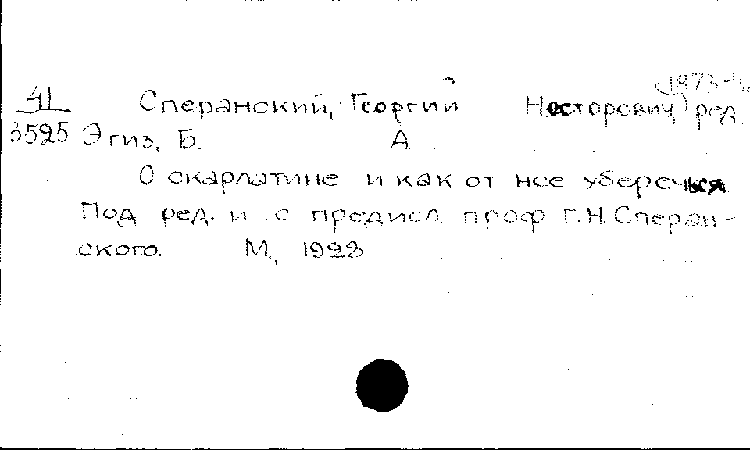 41 Сперанский, Георгий Несторович, ред.
3525 Эгиз, Б. А.
О скарлатине и как от нее уберечься
Под ред. и с предисл. проф. Г.Н. Сперан-
ского. М., 1928